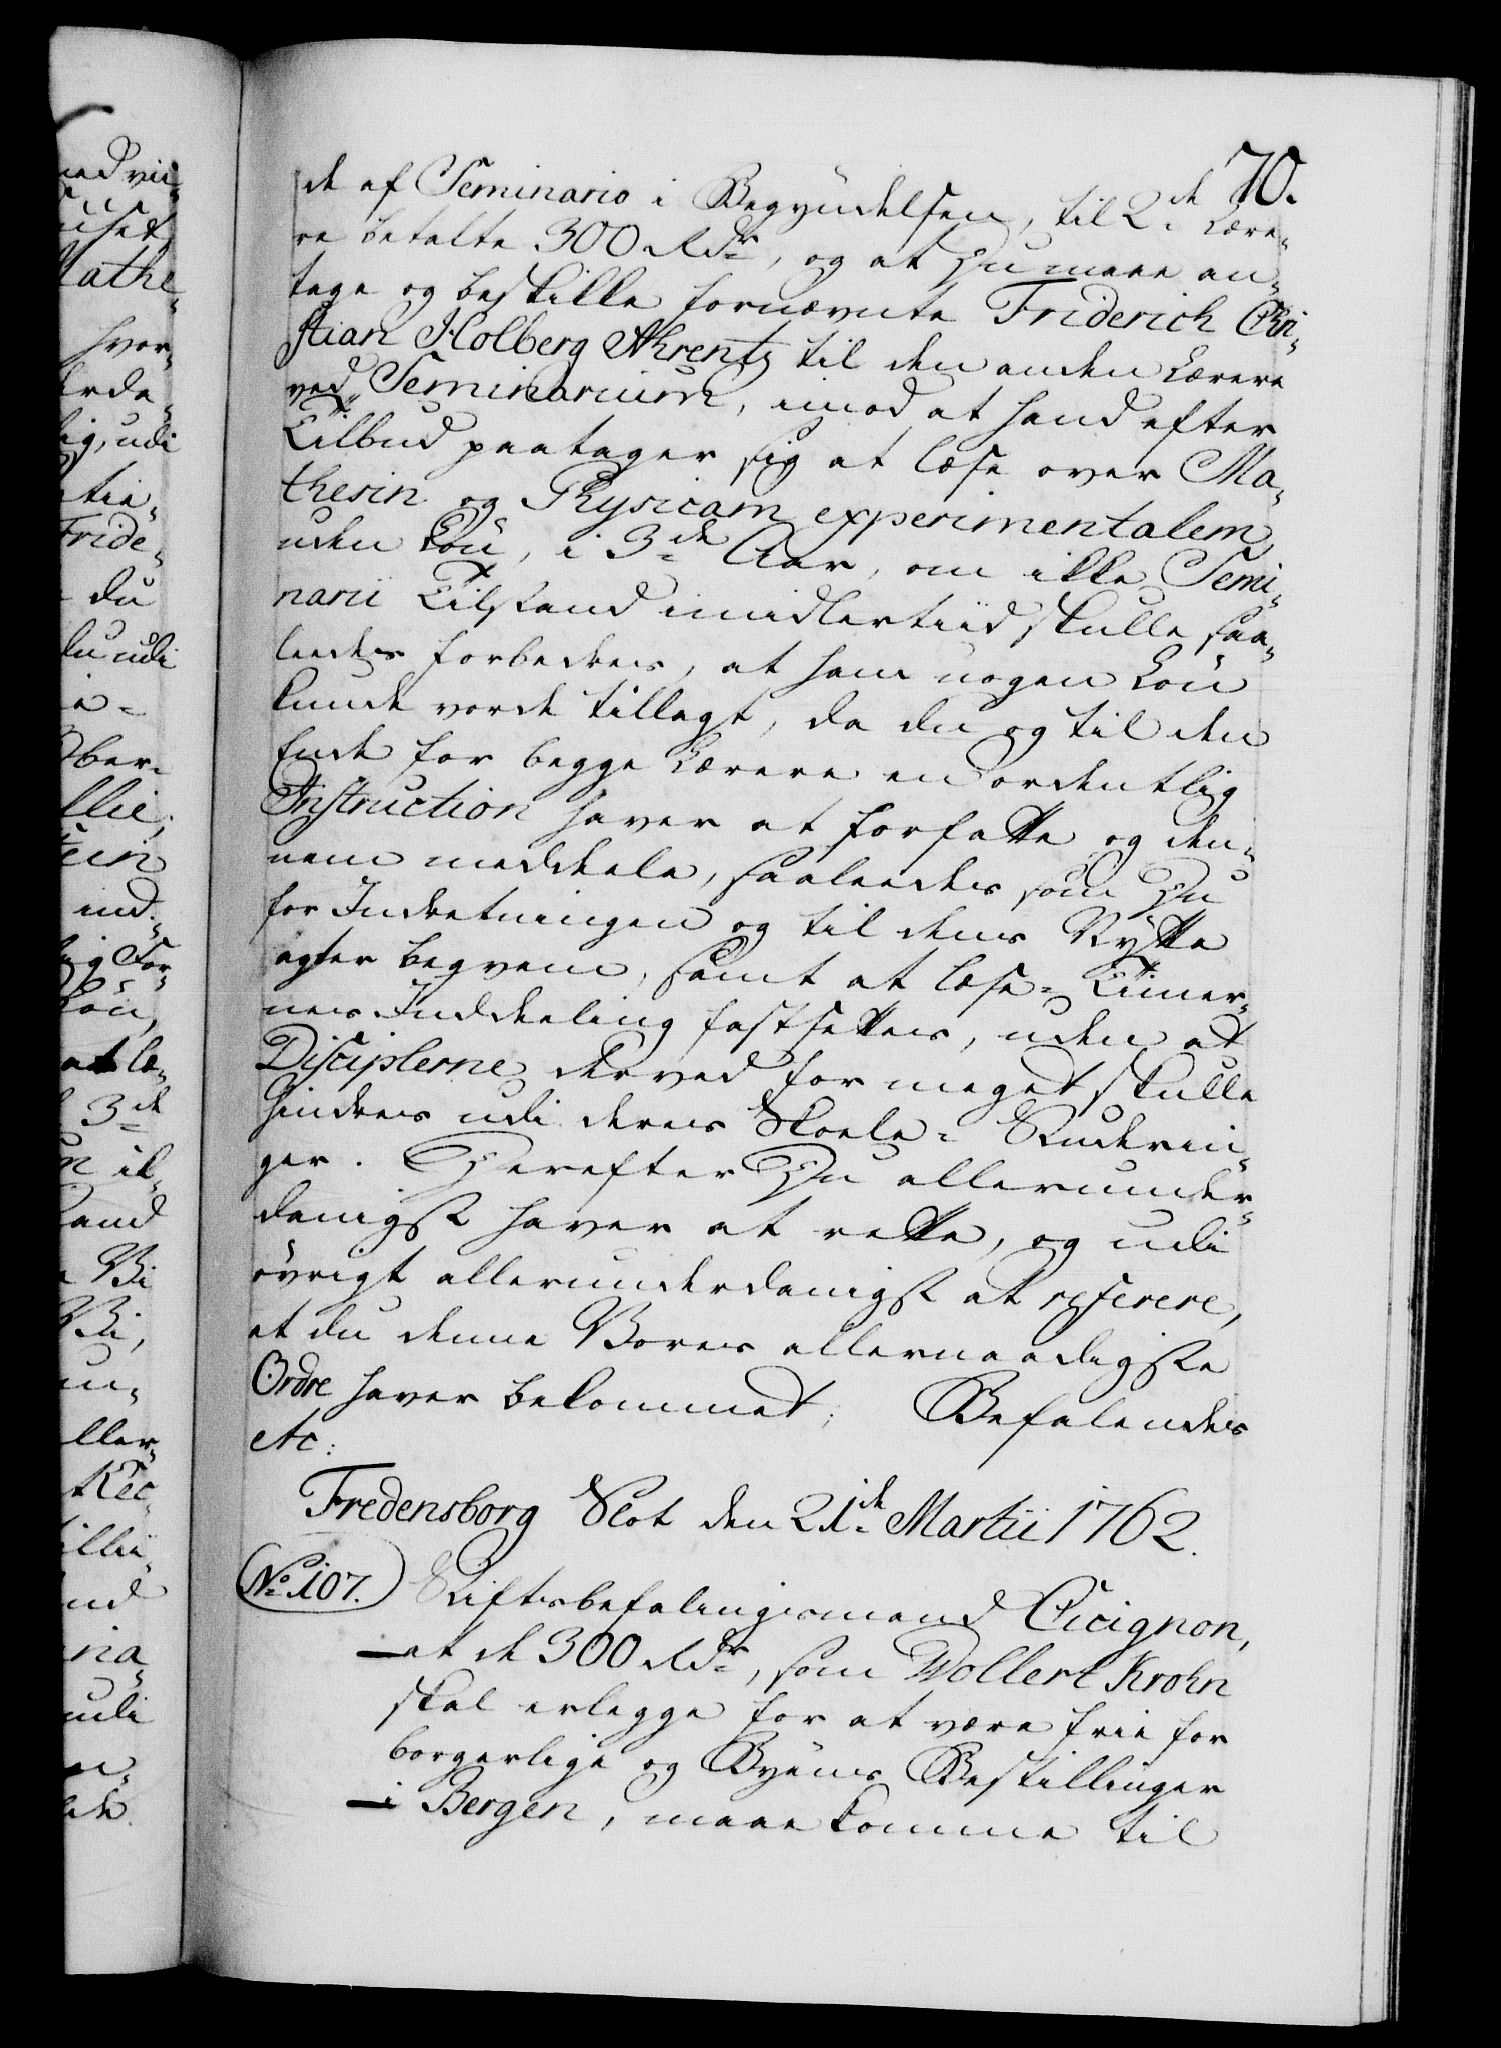 70.
de af Seminario i Begyndelsen, til 2de Lære-
re betalte 300 Rdr, og at Du maae an-
tage og beskikke fornævnte Friderich Chri-
stian Holberg Ahrentz til den anden Lærere
ved Seminarium, imod at hand efter
Tilbud paatager sig at læse over Ma-
thesin og Physicam experimentalem,
uden Løn, i 3de Aar, om ikke Semi-
narii Tilstand imidlertiid skulle saa-
leedes forbedres, at ham nogen Løn
kunde vorde tillagt, da du og til den
Ende for begge Lærere en ordentlig
Instruction haver at forfatte og den-
nem meddeele, saaleedes som Du
for Indretningen og til dens Nytte
agter beqvem, samt at læse-Timer-
nes Inddeeling fastsettes, uden at
Disciplerne derved for meget skulle
hindres udi deres Skoele-Studerin-
ger. Herefter Du allerunder-
danigst haver at rette, og udi
øvrigt allerunderdanigst at referere,
at du denne Vores allernaadigste
Ordre haver bekommet. Befalendes
etc:
Fredensborg Slot den 21de Martii 1762.
No. 107. Stiftsbefalingsmand Cicignon,
at de 300 Rdr, som Wollert Krohn
skal erlegge for at være frie for
borgerlige og Byens Bestillinger
i Bergen, maae komme til